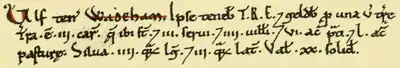 Vlf ten' Wadeham. Ipse teneb' T.R.E. 7 geldb' p una v' træ.
Tra. ē. iii. car'. q̄ ibi st̄. 7 iii. serui. 7 iiii. uilli. 7 vi. ac' p̄ti. 7 l. ac'
pasturæ. Silua. iiii. qr' lg'. 7 iii. qr' lat'. Val' xx. solid'.